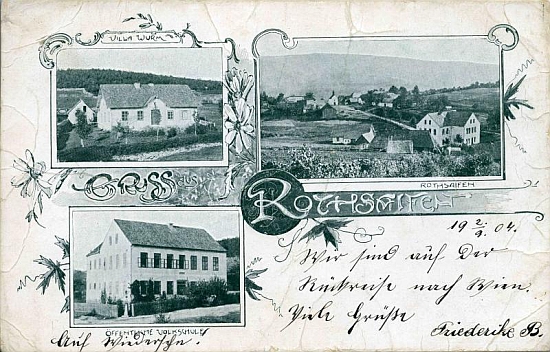 VILLA WURM
GRUSS AUS
ROTHSAIFEN
ROTHSAIFEN
19 2/9 04.
Wir sind auf der
Rückreise nach Wien.
Viele Grüße
Friederike B.
ÖFFENTLICHE VOLKSCHULE
Auf Wiedersehn.